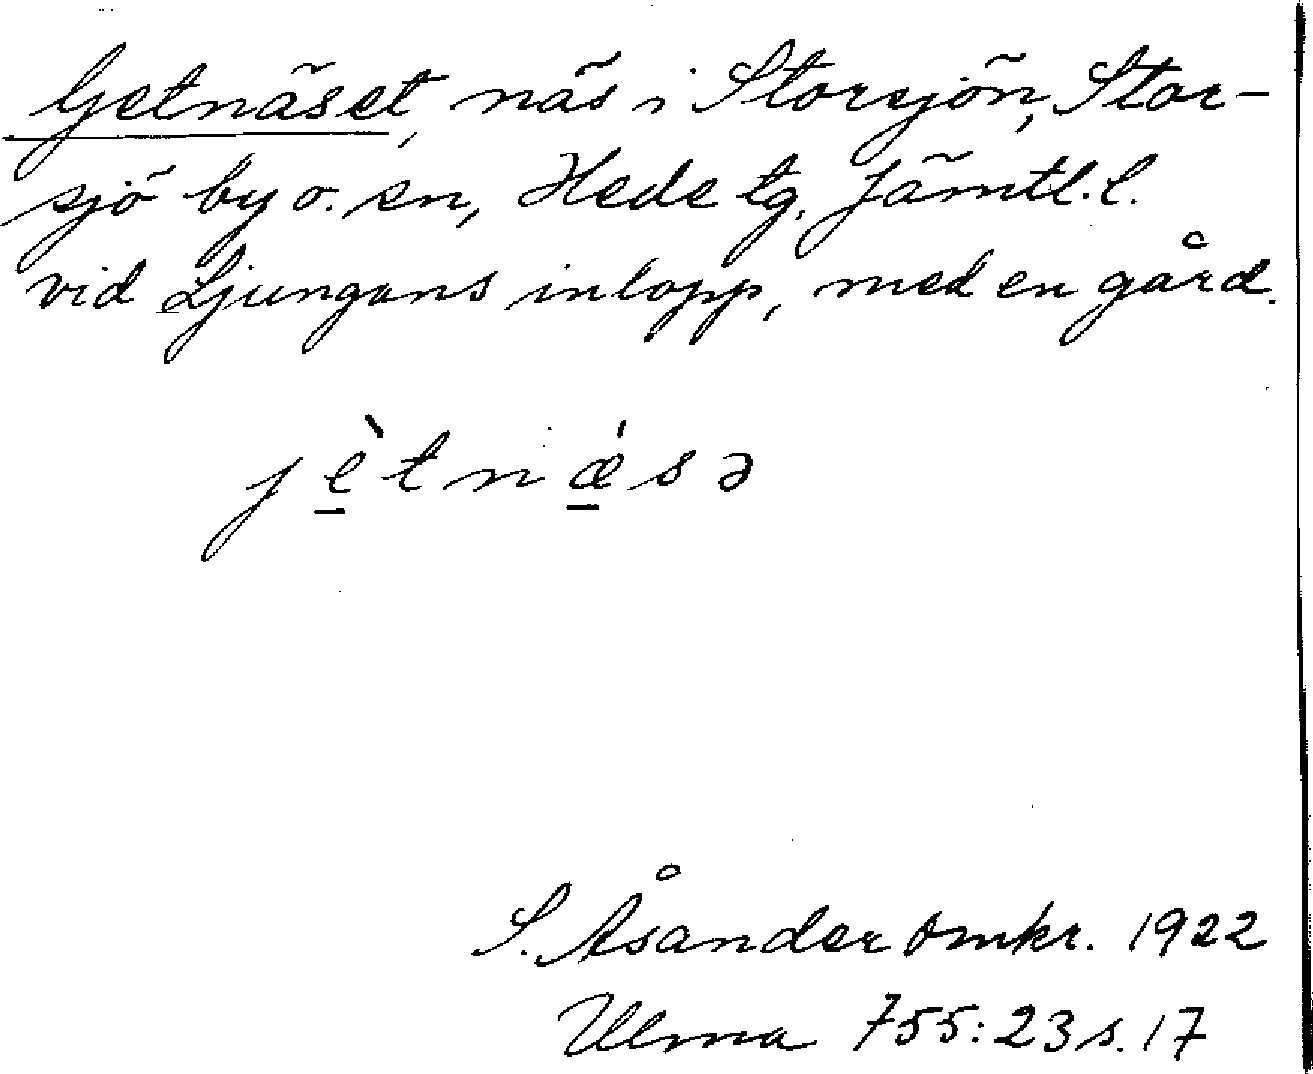 Getnäset, näs i Storsjön, Stor-
sjö by o. sn, Hede tg. Jämtl. l.
vid Ljungans inlopp, med en gård.
jè̱tnǽ̱sə
S. Åsander omkr. 1922
Ulma 755:23 s. 17